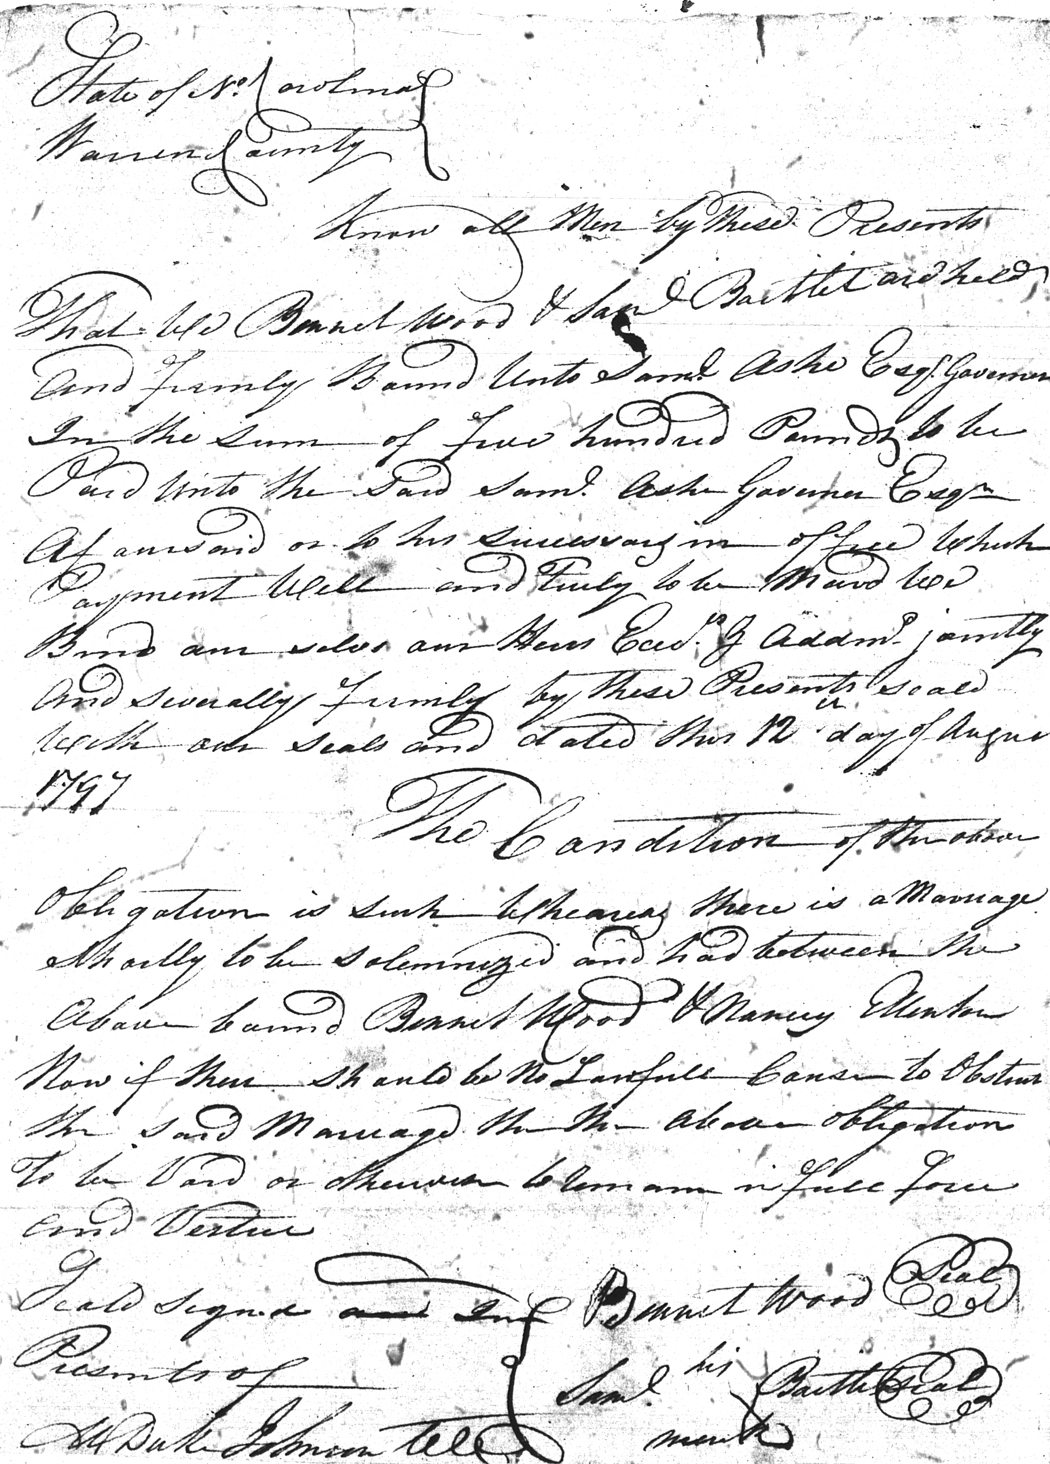 State of No. Carolina
Warren County
Know all Men by these Presents
That we Bennet Wood & Saml Bartlet are held
And firmly Bound Unto Saml. Ashe Esqr. Governer
In the Sum of five hundred Pounds to be
Paid Unto the Said Saml. Ashe Governer Esqr
Afoursaid or to his Successors in office Which
Payment Well and Truly to be Maid We
Bind our selves our Heirs Exers. & Addmr. jointly
And severally firmly by these Presents seald
With our seals and dated this 12th day of Augus
1797
The Condition of the above
Obligation is such Whereas there is a Marriage
Shortly to be Solemnized and had between the
Above bound Bennet Wood & Nancy Ellenton
Now if there should be No Lawfull Cause to Obstruct
the said Marriage the the above obligation
To be Void or otherwise to remain in full force
and Vertue
Seald signed and In
Presents of
Bennet Wood Seal
Saml. his mark Bartlet Seal
M Duke Johnson